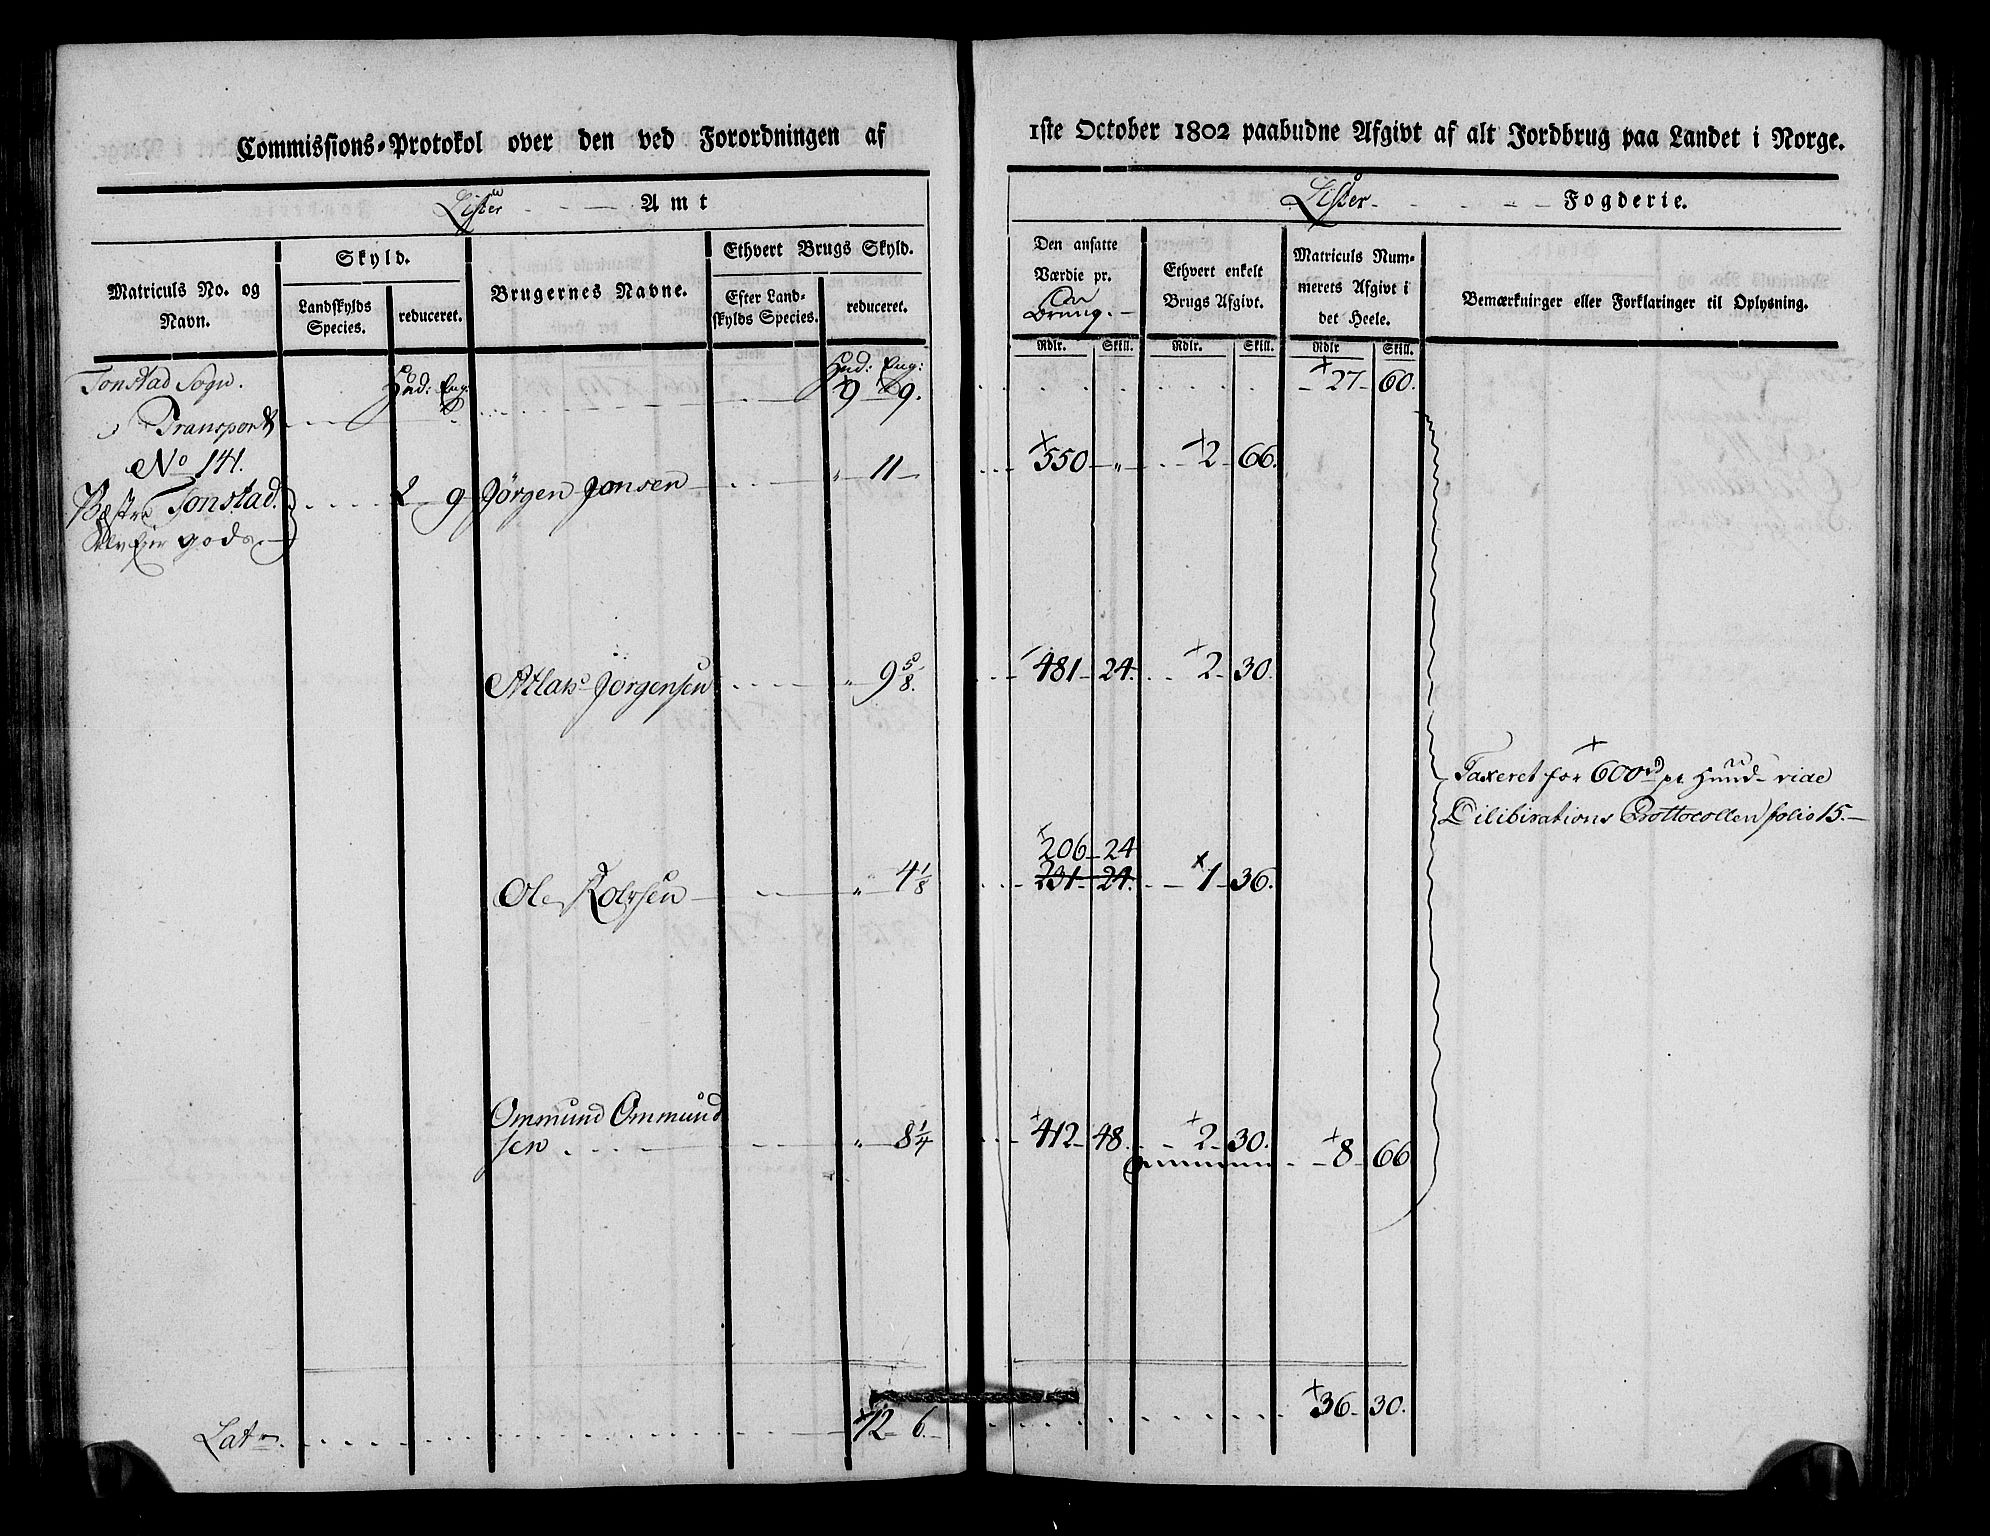 Commissions-Protokol over den ved Forordningen af
1ste October 1802 paabudne Afgivt af alt Jordbrug paa Landet i Norge.
Lister Amt
Lister Fogderie.
Matriculs No. og Navn.
Skyld.
Landskylds Species.
reduceret.
Brugernes Navne.
Ethvert Brugs Skyld.
Efter Landskylds Species.
reduceret.
Den ansatte Værdie pr.
Brung.
Ethvert enkelt Brugs Afgivt.
Matriculs Nummerets Afgivt i det Heele.
Bemærkninger eller Forklaringer til Oplysning.
Rdlr. Skill. Rdlr. Skill. Rdlr Skill.
Tonstad Sogn. Hud: Eng: Hud: Eng:
Transport 9 9. 27 60.
No 141.
Vestre Tonstad. 2 9 Jörgen Jonsen " 11 550 " 2 66.
Selv Eier gods.
Atlak Jörgensen " 9 5/8. 481 24. 2 30.
Taxeret for 600 rd pr Huud vide
Dilibirations Prottocollen folio 15.
206 24
Ole Rolvsen " 4 1/8 231 24. 1 36.
Ommund Ommund
sen " 8 1/4 412 48. 2 30. 8 66
Lat 12 6. 36 30.